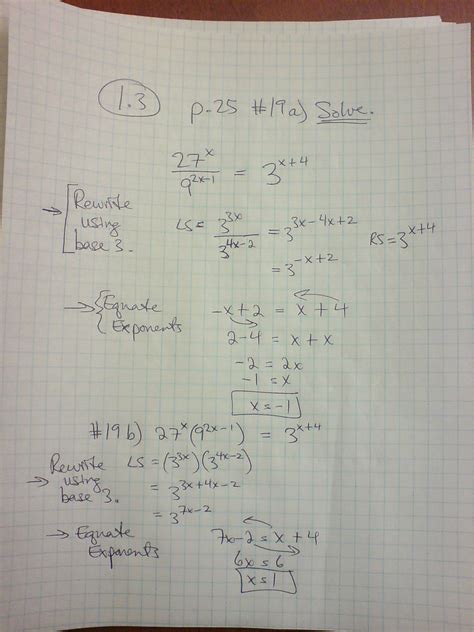 1.3 p.25 #19a) Solve.
27^x / 9^(2x-1) = 3^(x+4)
→ [Rewrite using base 3.
LS = 3^(3x) / 3^(4x-2) = 3^(3x-4x+2) RS = 3^(x+4)
= 3^(-x+2)
→ {Equate Exponents
-x+2 = x+4
2-4 = x+x
-2 = 2x
-1 = x
x = -1
#19 b) 27^x (9^(2x-1)) = 3^(x+4)
→ Rewrite using base 3.
LS = (3^(3x))(3^(4x-2))
= 3^(3x+4x-2)
= 3^(7x-2)
→ Equate Exponents
7x-2 = x+4
6x = 6
x = 1